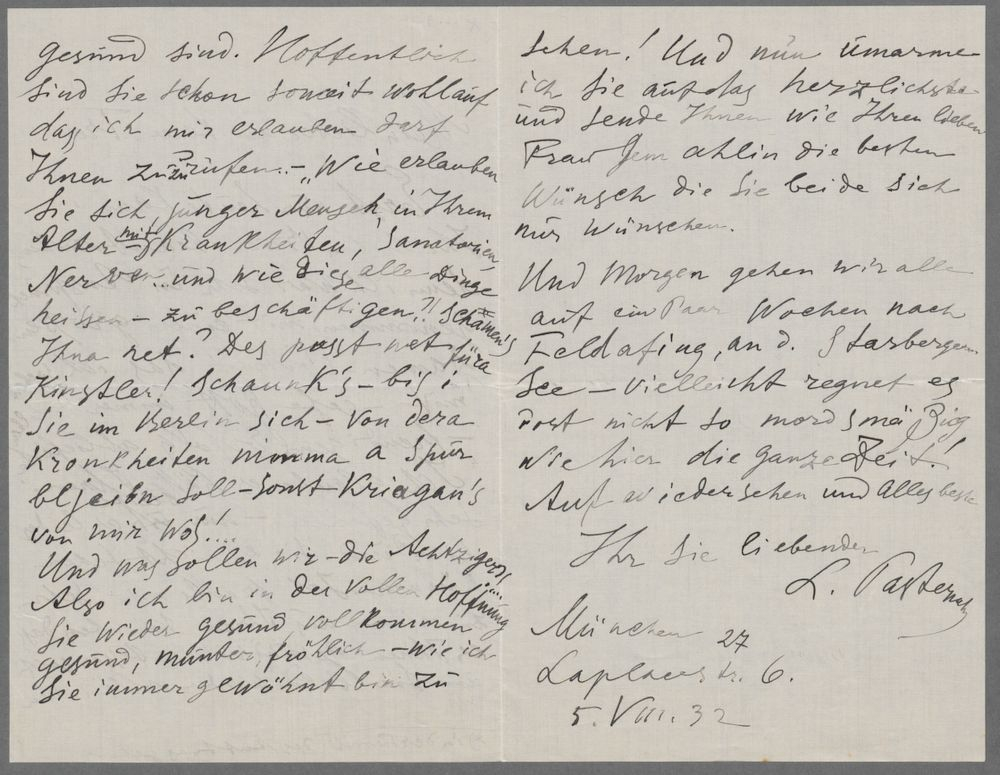 gesund sind. Hoffentlich
sind Sie schon soweit wohlauf
dass ich mir erlauben darf
Ihnen zuzurufen.- „Wie erlauben
Sie sich, junger Mensch, in Ihrem
Alter mit Krankheiten, Sanatorien,
Nerven... und wie diese alle Dinge
heissen - zu beschäftigen?! Schämen's
Ihna net? Des passt net füra
Kinstler! Schaunk's - bis i
Sie im Berlin sich - von dera
Kronkheiten nimma a Spur
bljeibn soll - sonst Kriagan's
von mir Wos!...
Und was sollen wir - die Achtziger
Also ich bin in der vollen Hoffnung
Sie wieder gesund vollkommen
gesund, munter, fröhlich - wie ich
Sie immer gewöhnt bin zu
sehen! Und nun umarme
ich Sie auf das herzlichste
und sende Ihnen wie Ihren lieben
Frau Gemahlin die besten
Wünsch die Sie beide sich
nur wünschen.
Und Morgen gehen wir alle
auf ein Paar Wochen nach
Feldafing, an d. Starberger
See - vielleicht regnet es
dort nicht so mordsmäßig
wie hier die ganze Zeit!
Auf wiedersehen und Alles beste
Ihr Sie liebender
L. Pasternak
München 27
Laplacestr. 6.
5. VIII. 32